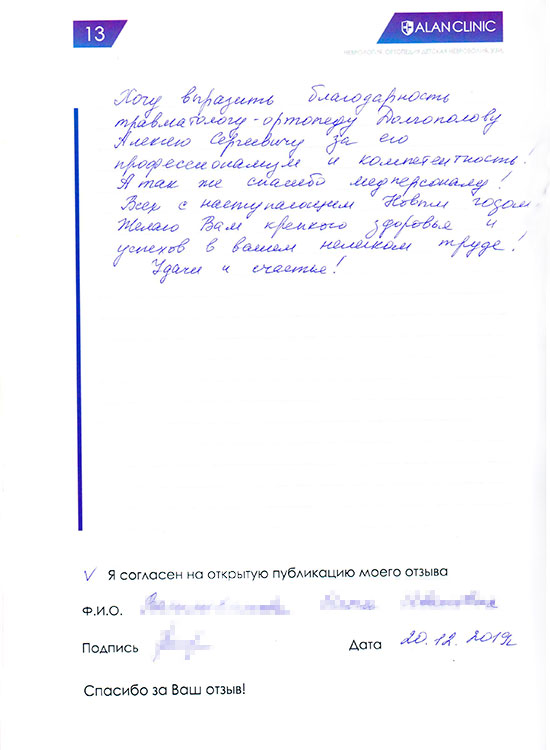 13
ALAN CLINIC
Хочу выразить благодарность
травматологу-ортопеду Долгополову
Алексею Сергеевичу за его
профессионализм и компетентность!
А так же спасибо медперсоналу!
Всех с наступающим Новым годом
Желаю Вам крепкого здоровья и
успехов в вашем нелегком труде!
Удачи и счастье!
V Я согласен на открытую публикацию моего отзыва
Ф.И.О.
Подпись Дата 20.12.2019г
Спасибо за Ваш отзыв!